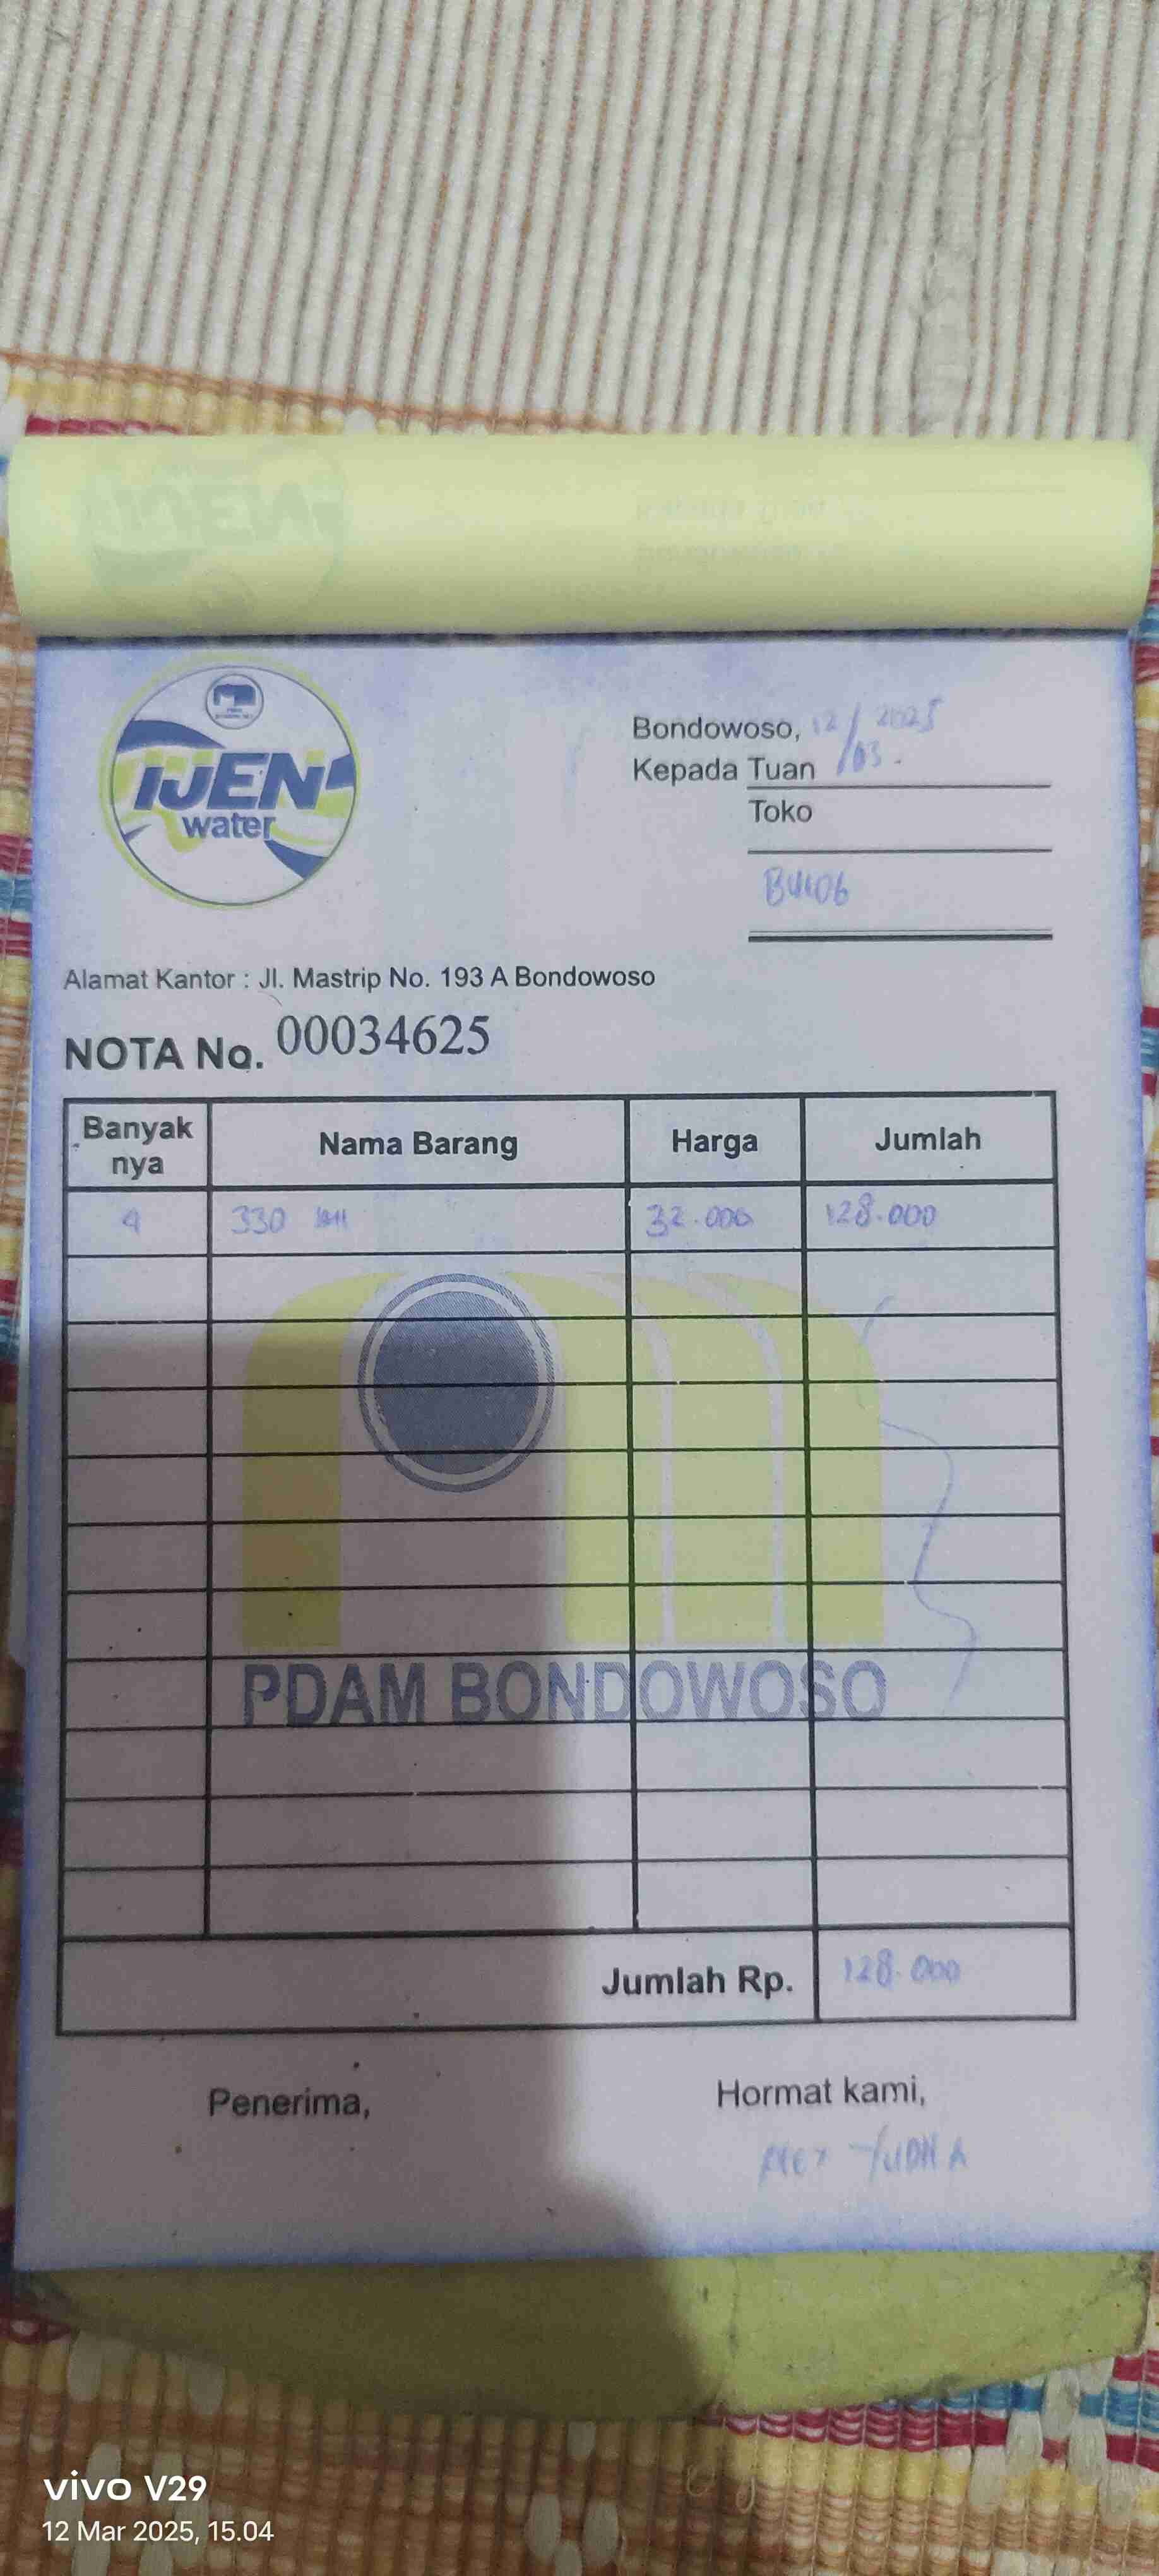 IJEN
water
Bondowoso, 12/03. 2025
Kepada Tuan
Toko
Alamat Kantor : Jl. Mastrip No. 193 A Bondowoso
NOTA No. 00034625
Banyak nya Nama Barang Harga Jumlah
4 330 32.000 128.000
PDAM BONDOWOSO
Jumlah Rp. 128.000
Penerima, Hormat kami,
YUDHA
vivo V29
12 Mar 2025, 15.04